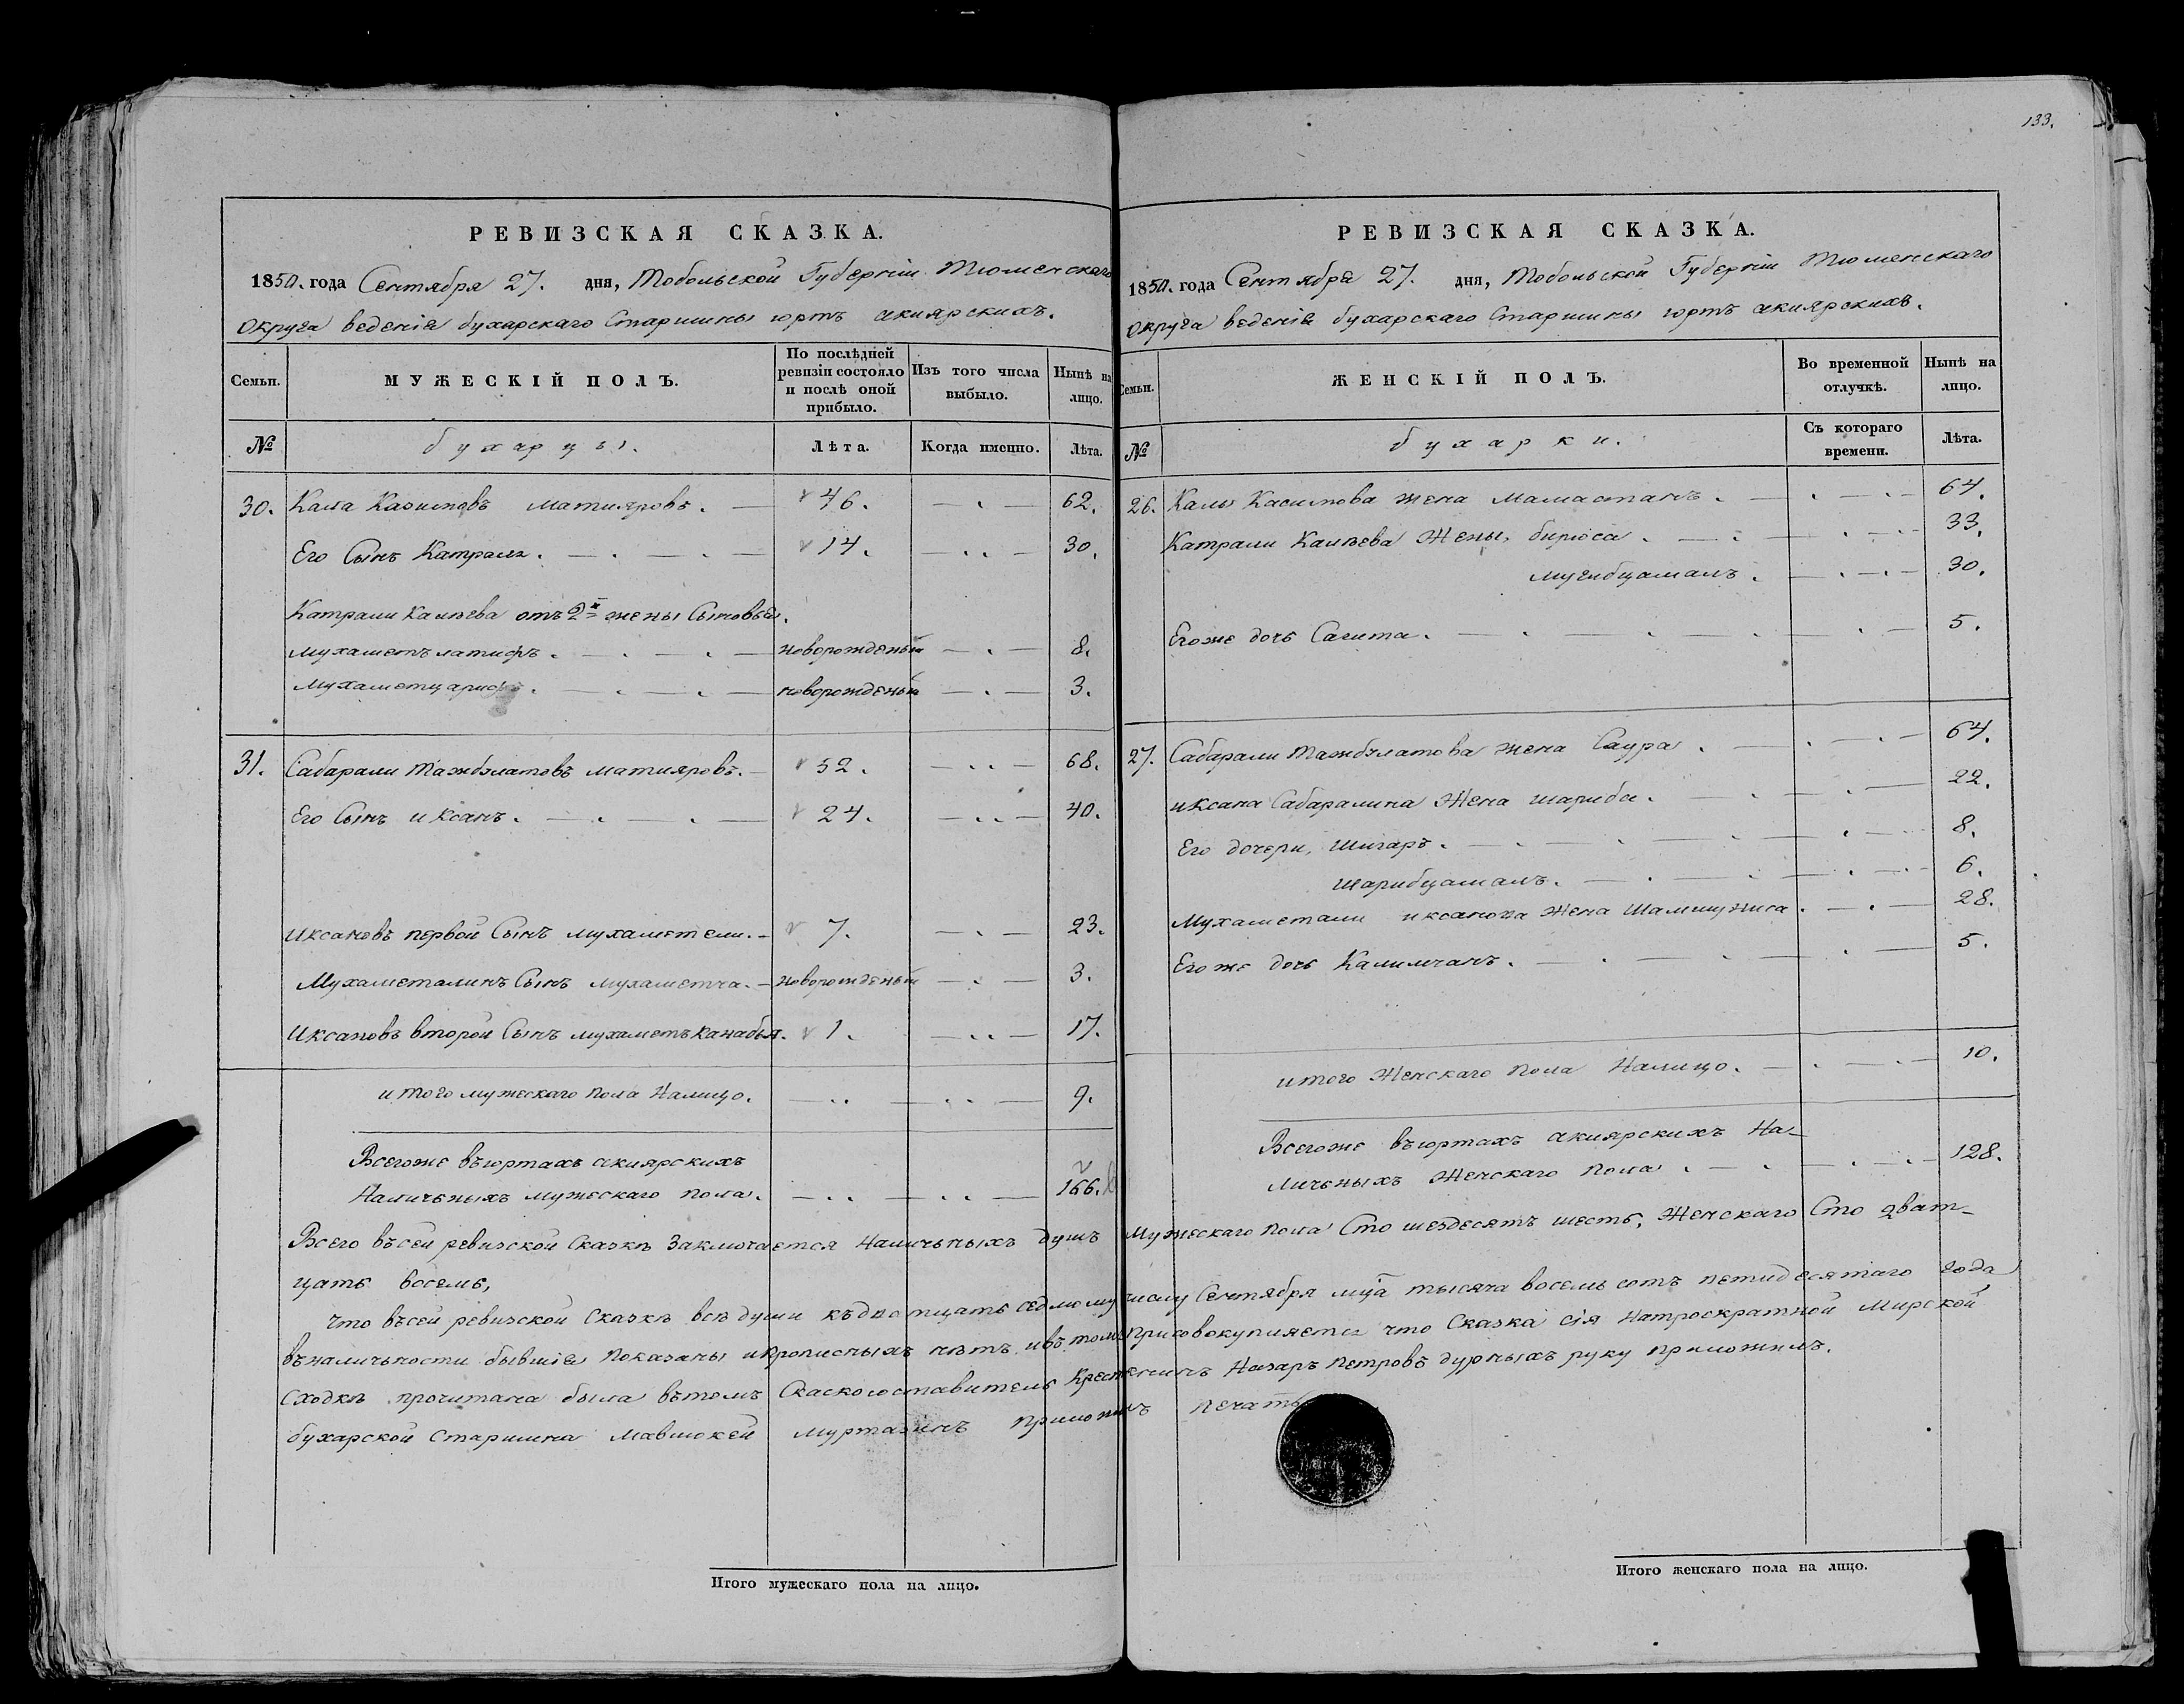 133.
РЕВИЗСКАЯ СКАЗКА.
1850. года Сентября 27. дня, Тобольской Губерніи Тюменскаго
Округа веденія бухарскаго Старшины юртъ акиярскихъ.
Семьи.
МУЖЕСКІЙ ПОЛЪ.
По послѣдней ревизіи состояло и послѣ оной прибыло.
Изъ того числа выбыло.
Нынѣ на лицо.
№
бухарцы.
Лѣта.
Когда именно.
Лѣта.
30. Кала Казимовъ матияровъ. 46. 62.
Его Сынъ Катрали. 14. 30.
Катрали Калѣева отъ 2й жены Сыновья.
мухаметълатифъ. новорожденый 8.
мухаметцарифъ. новорожденый 3.
31. Сабарали Тажбулатовъ матияровъ. 52. 68.
Его Сынъ иксанъ. 24. 40.
иксановъ первой Сынъ мухаметъ 7. 23.
Мухаметалинъ Сынъ мухаметча. новорожденый 3.
иксановъ второй Сынъ мухаметъ канабья. 1. 17.
итого мужескаго пола Налицо. 9.
Всегоже въюртахъ акиярскихъ
Наличьныхъ мужескаго пола. 166.
РЕВИЗСКАЯ СКАЗКА.
1850. года Сентября 27. дня, Тобольской Губерніи Тюменскаго
Округа веденія бухарскаго Старшины юртъ акиярскихъ.
Семьи.
ЖЕНСКІЙ ПОЛЪ.
Во временной отлучкѣ.
Нынѣ на лицо.
№
бухарки.
Съ котораго времени.
Лѣта.
26. Калы Касимова жена мамастанъ. 64.
Катрали Калѣева Жены, бирюса. 33.
мугибцамалъ. 30.
Егоже дочь Сагита. 5.
27. Сабарали Тажбулатова жена Саура. 64.
иксана Сабаралина Жена шариба. 22.
Его дочери, Шигаръ. 8.
шарибцамалъ. 6.
Мухаметали иксанова Жена Шамшуниса. 28.
Егоже дочь Калимчанъ. 5.
итого Женскаго пола Налицо. 10.
Всегоже въюртахъ акиярскихъ На-
личьныхъ Женскаго пола. 128.
Всего въсей ревизской Сказкѣ Заключается Наличьныхъ душъ Мужескаго пола Сто шездесятъ шесть, Женскаго Сто дват-
цать восемь,
Что въсей ревизской Сказкѣ всѣ души къдватцать седмому числу Сентября мца тысяча восемь сотъ петидесятаго года
въналичьности бывшія показаны ипрописныхъ нѣтъ ивътомъ присовокупляется что Сказка сія Натроекратной Мирской
Сходкѣ прочитана была вътомъ Скаскосоставитель Крестенинъ Назаръ Петровъ дурныхъ руку приложилъ.
бухарской старшина Мавлюкей Муртазинъ приложилъ печать
Итого мужескаго пола на лицо.
Итого женскаго пола на лицо.